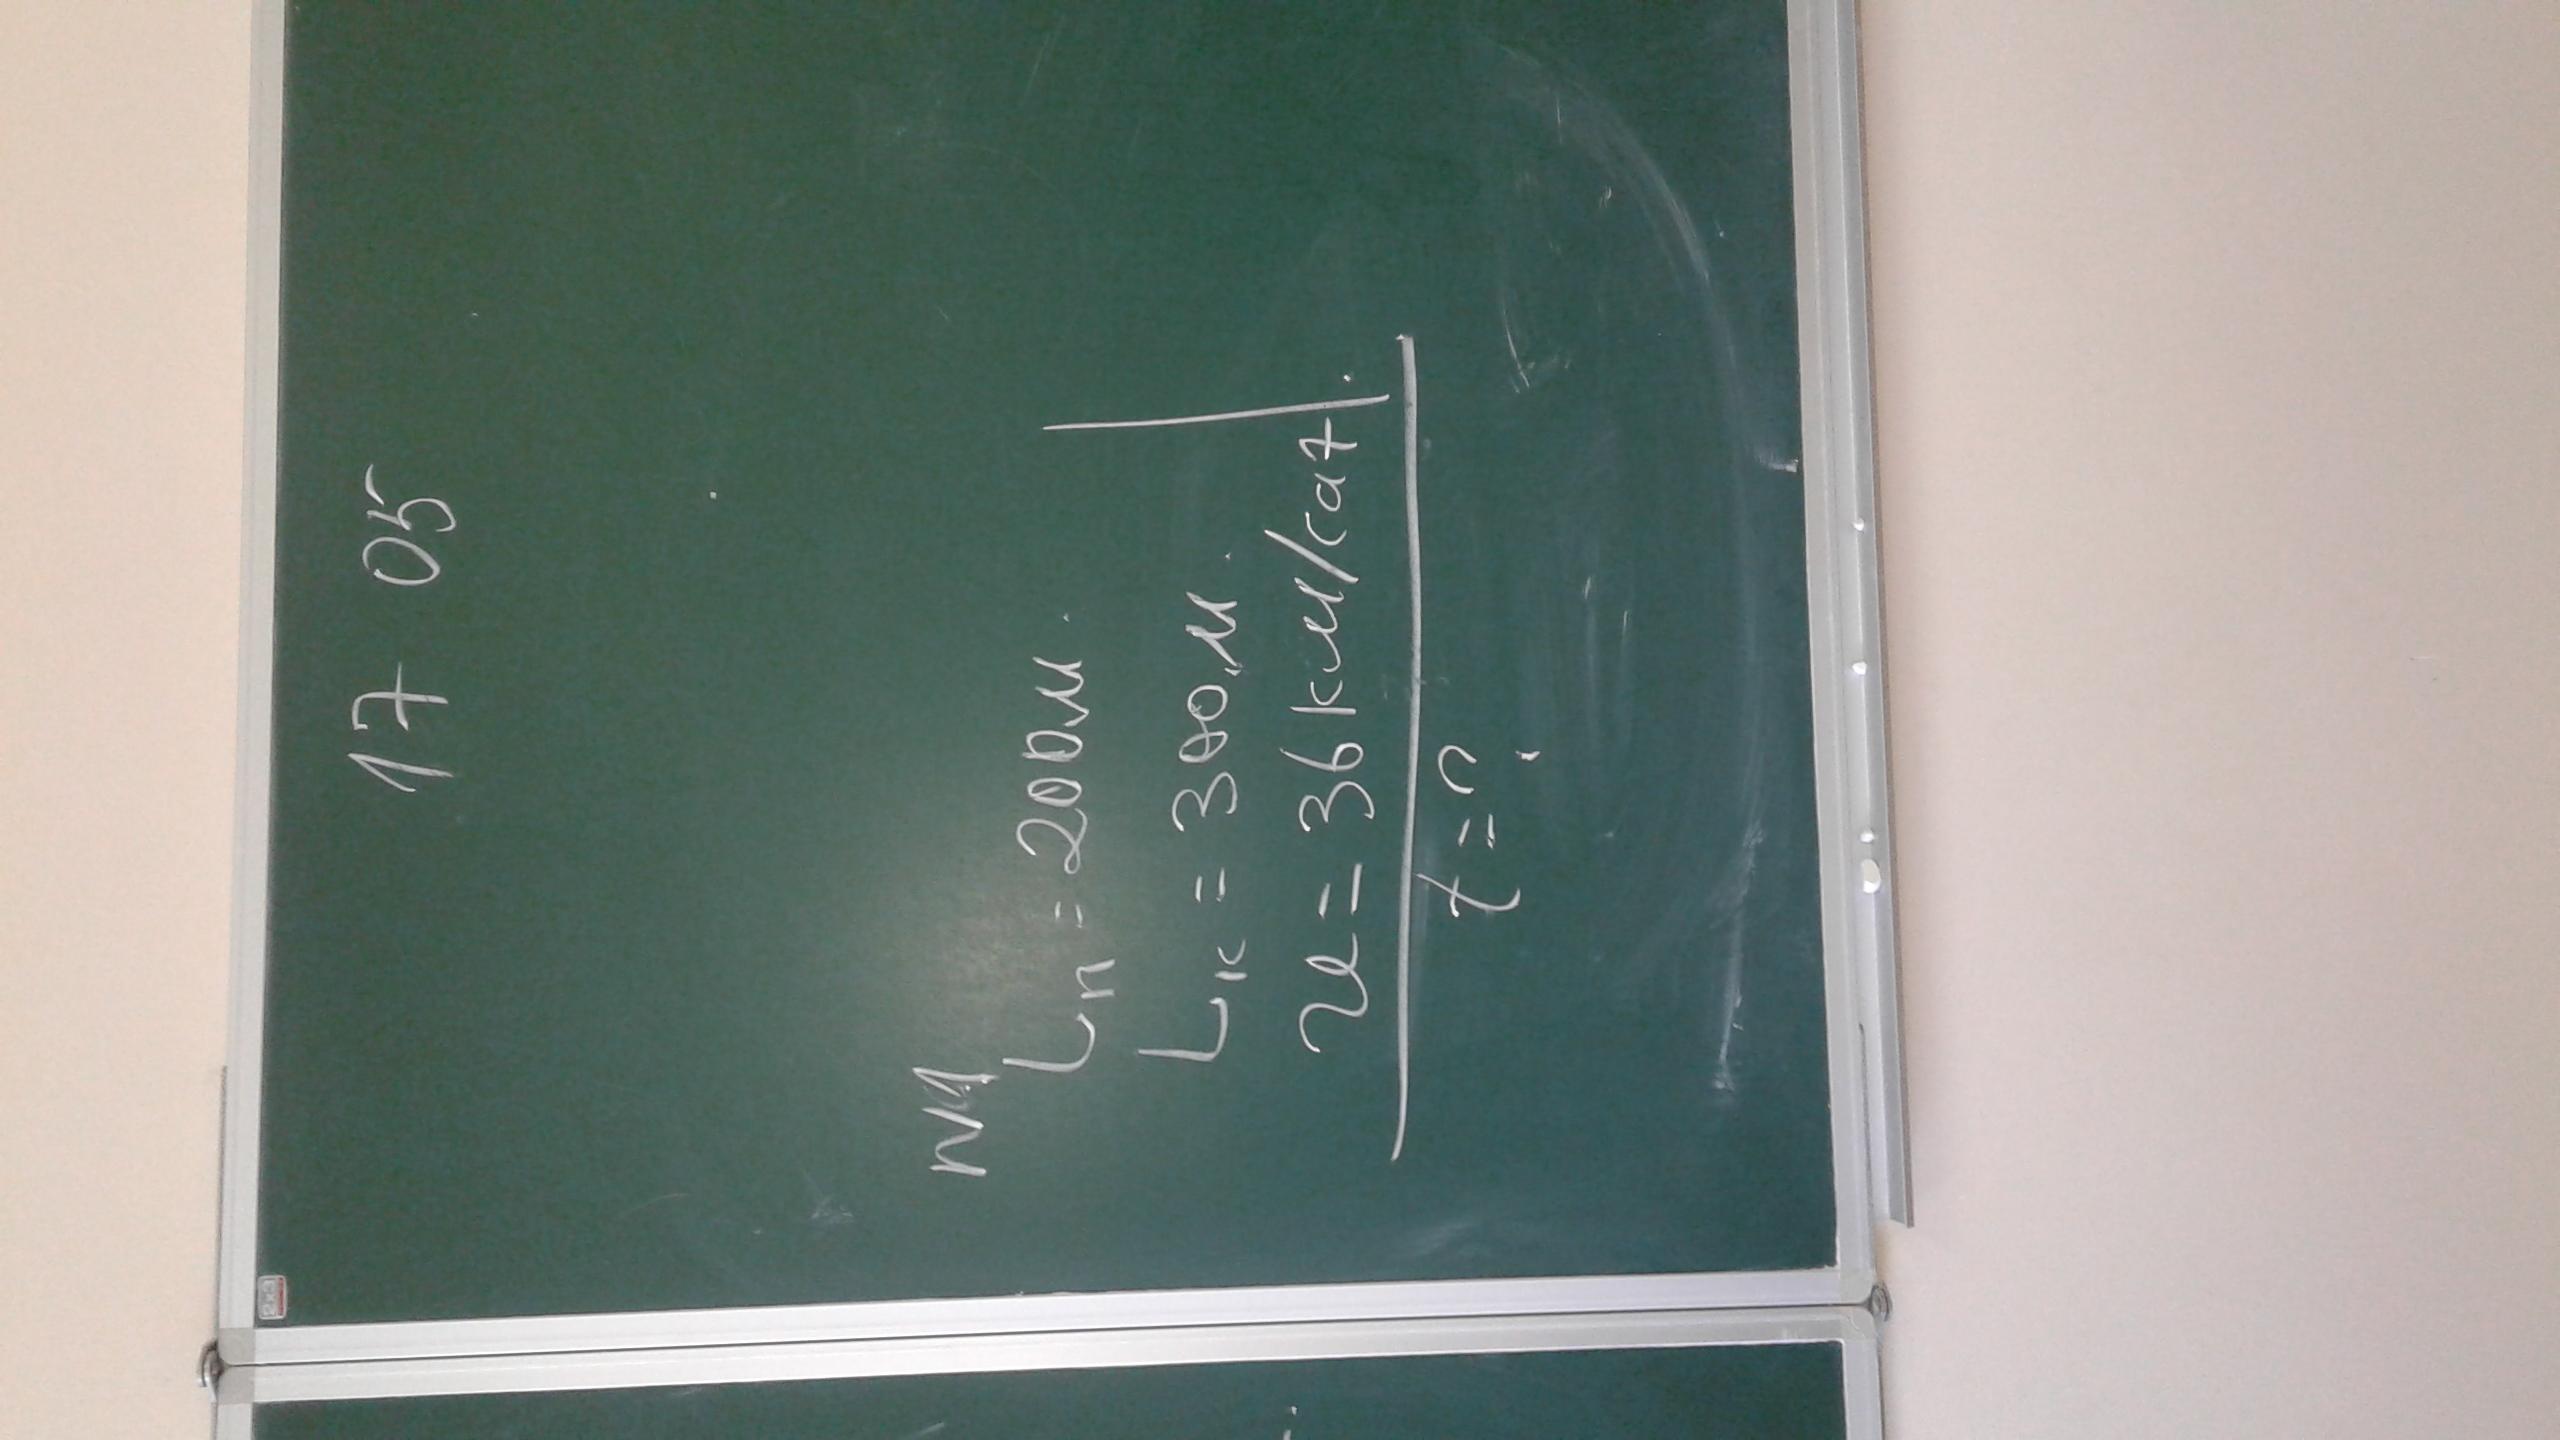 17 05
№1
Lп = 200м.
Lк = 300м.
v = 36 км/саг.
t = ?
2x3